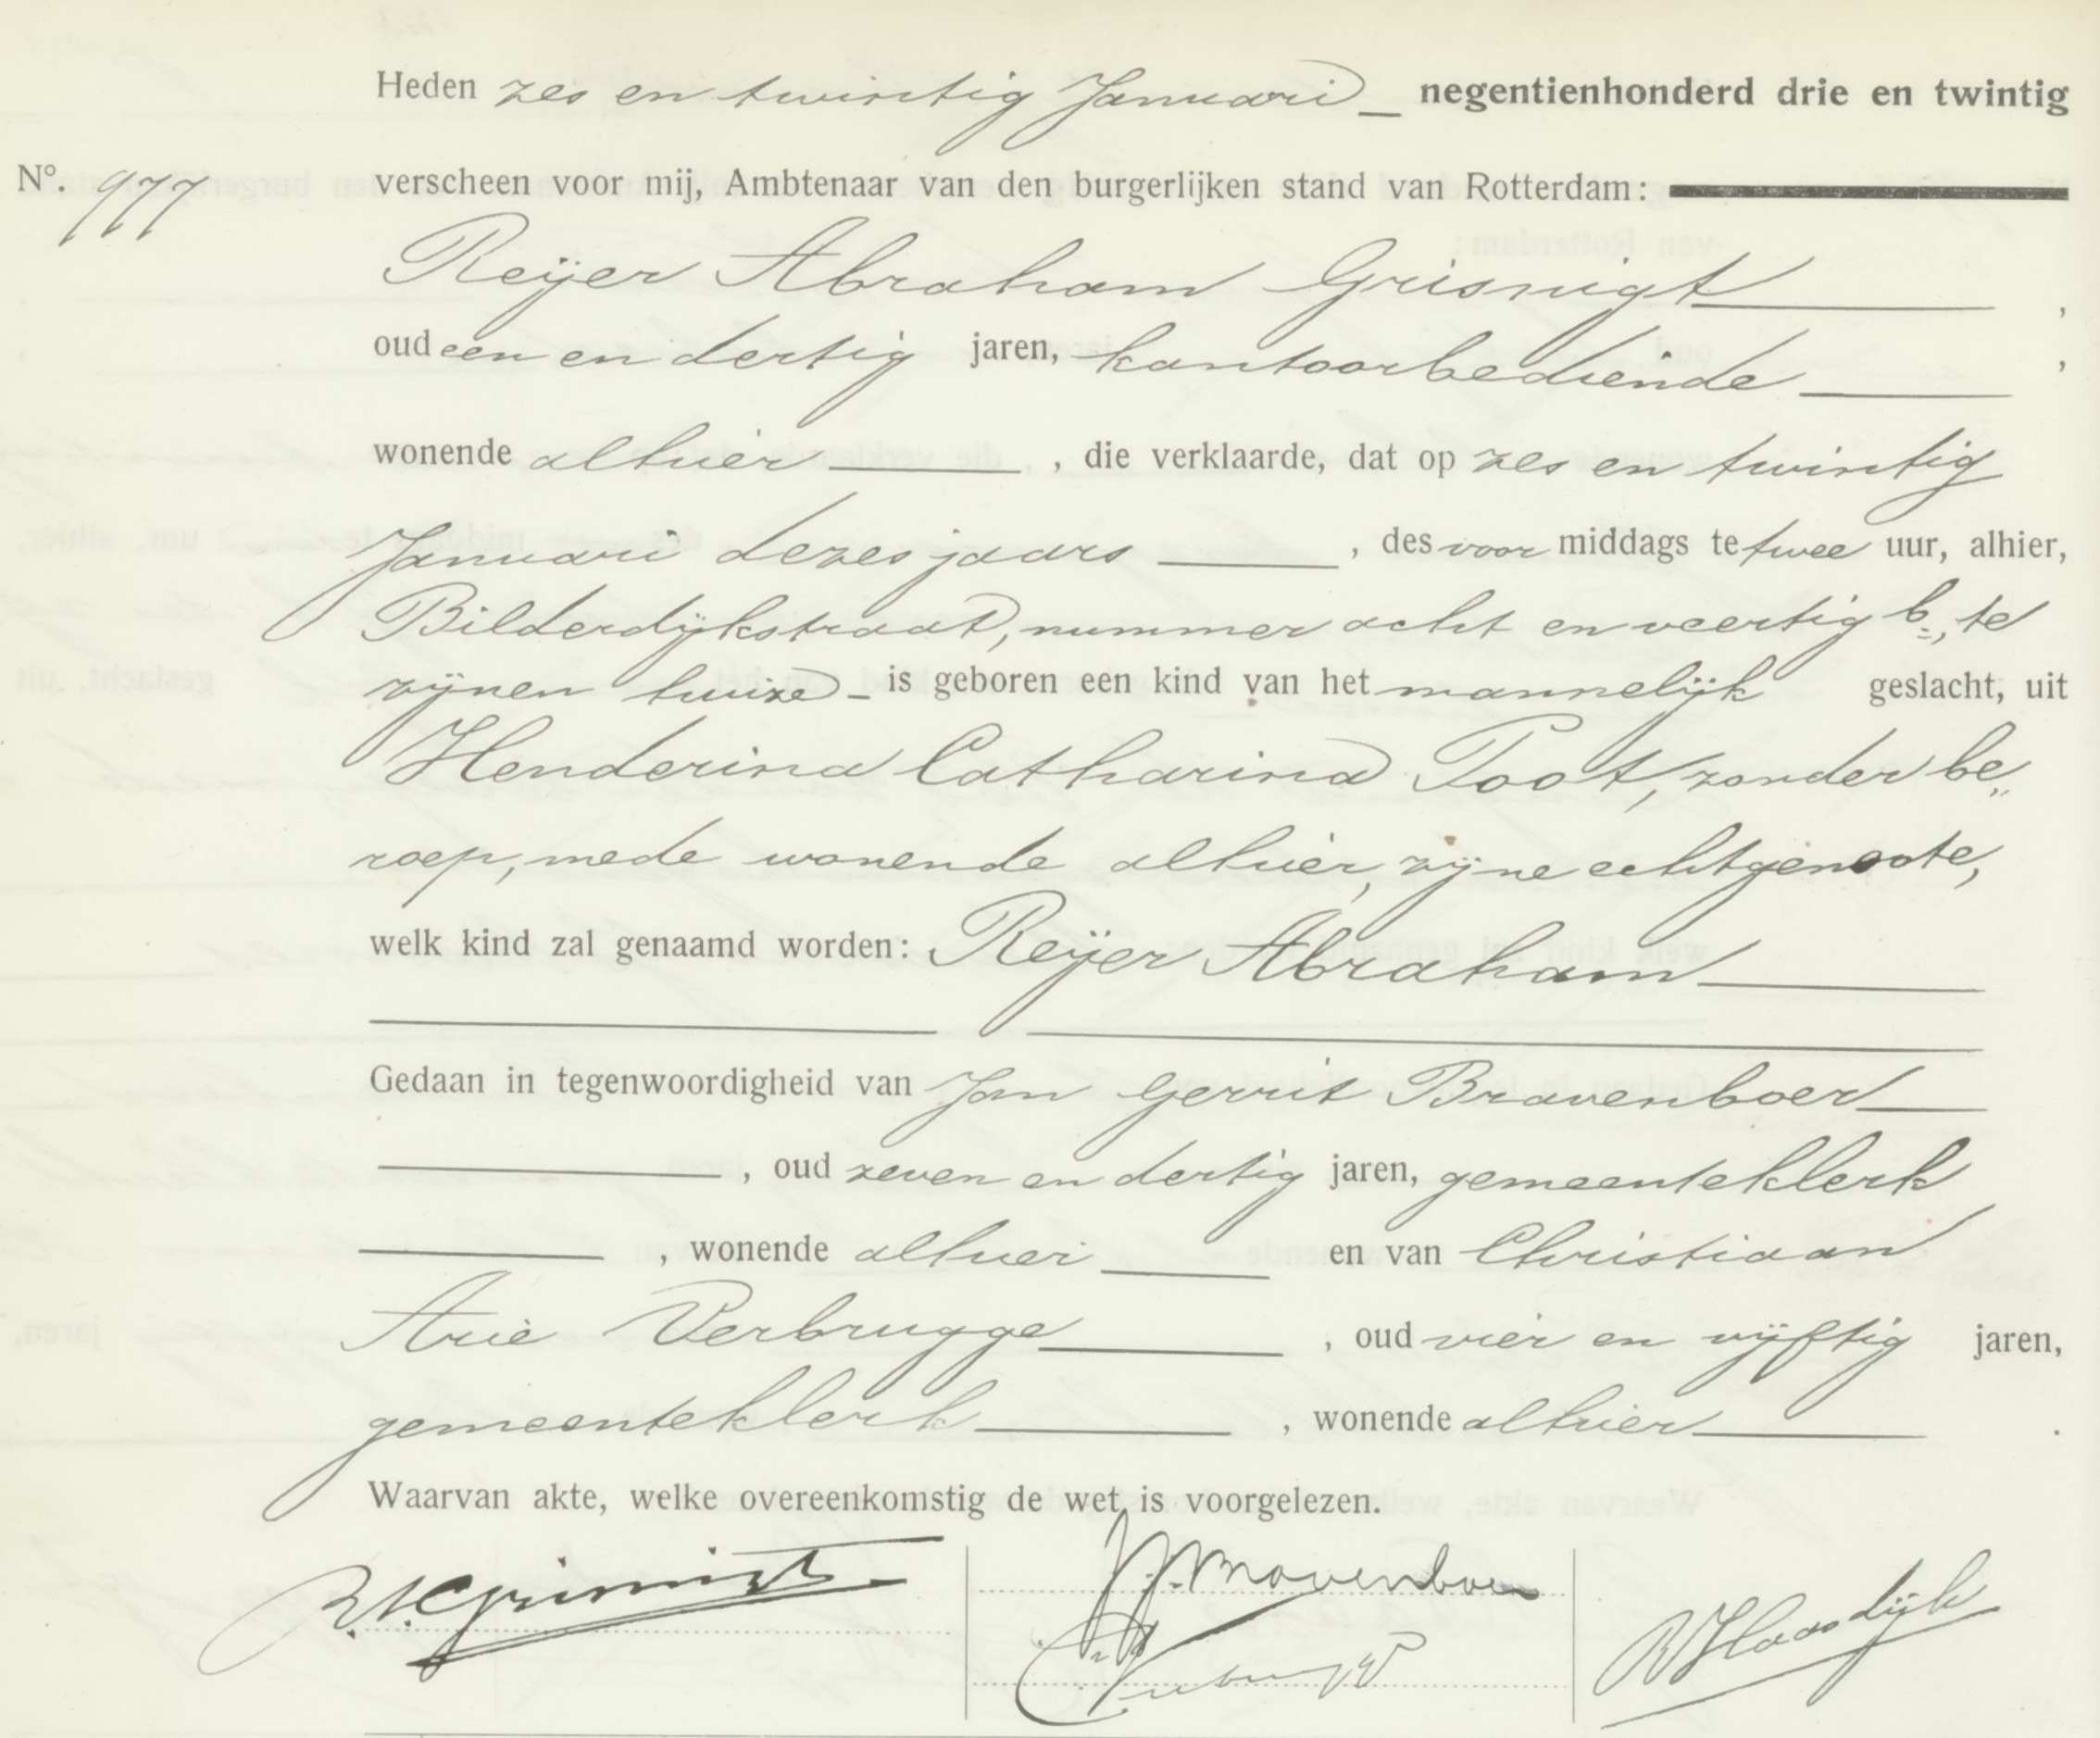 Heden zes en twintig Januari negentienhonderd drie en twintig
No. 977 verscheen voor mij, Ambtenaar van den burgerlijken stand van Rotterdam:
Reijer Abraham Grisnigt,
oud een en dertig jaren, kantoorbediende,
wonende alhier, die verklaarde, dat op zes en twintig
Januari dezes jaars, des voor middags te twee uur, alhier,
Bilderdijkstraat, nummer acht en veertig b, te
zijnen huize is geboren een kind van het mannelijk geslacht, uit
Henderina Catharina Poot, zonder be„
roep, mede wonende alhier, zijne echtgenoote,
welk kind zal genaamd worden: Reijer Abraham
Gedaan in tegenwoordigheid van Jan Gerrit Bravenboer
, oud zeven en dertig jaren, gemeenteklerk
, wonende alhier en van Christiaan
Arie Verbrugge, oud vier en vijftig jaren,
gemeenteklerk, wonende alhier.
Waarvan akte, welke overeenkomstig de wet is voorgelezen.
R.A. Grisnigt
J.G. Bravenboer